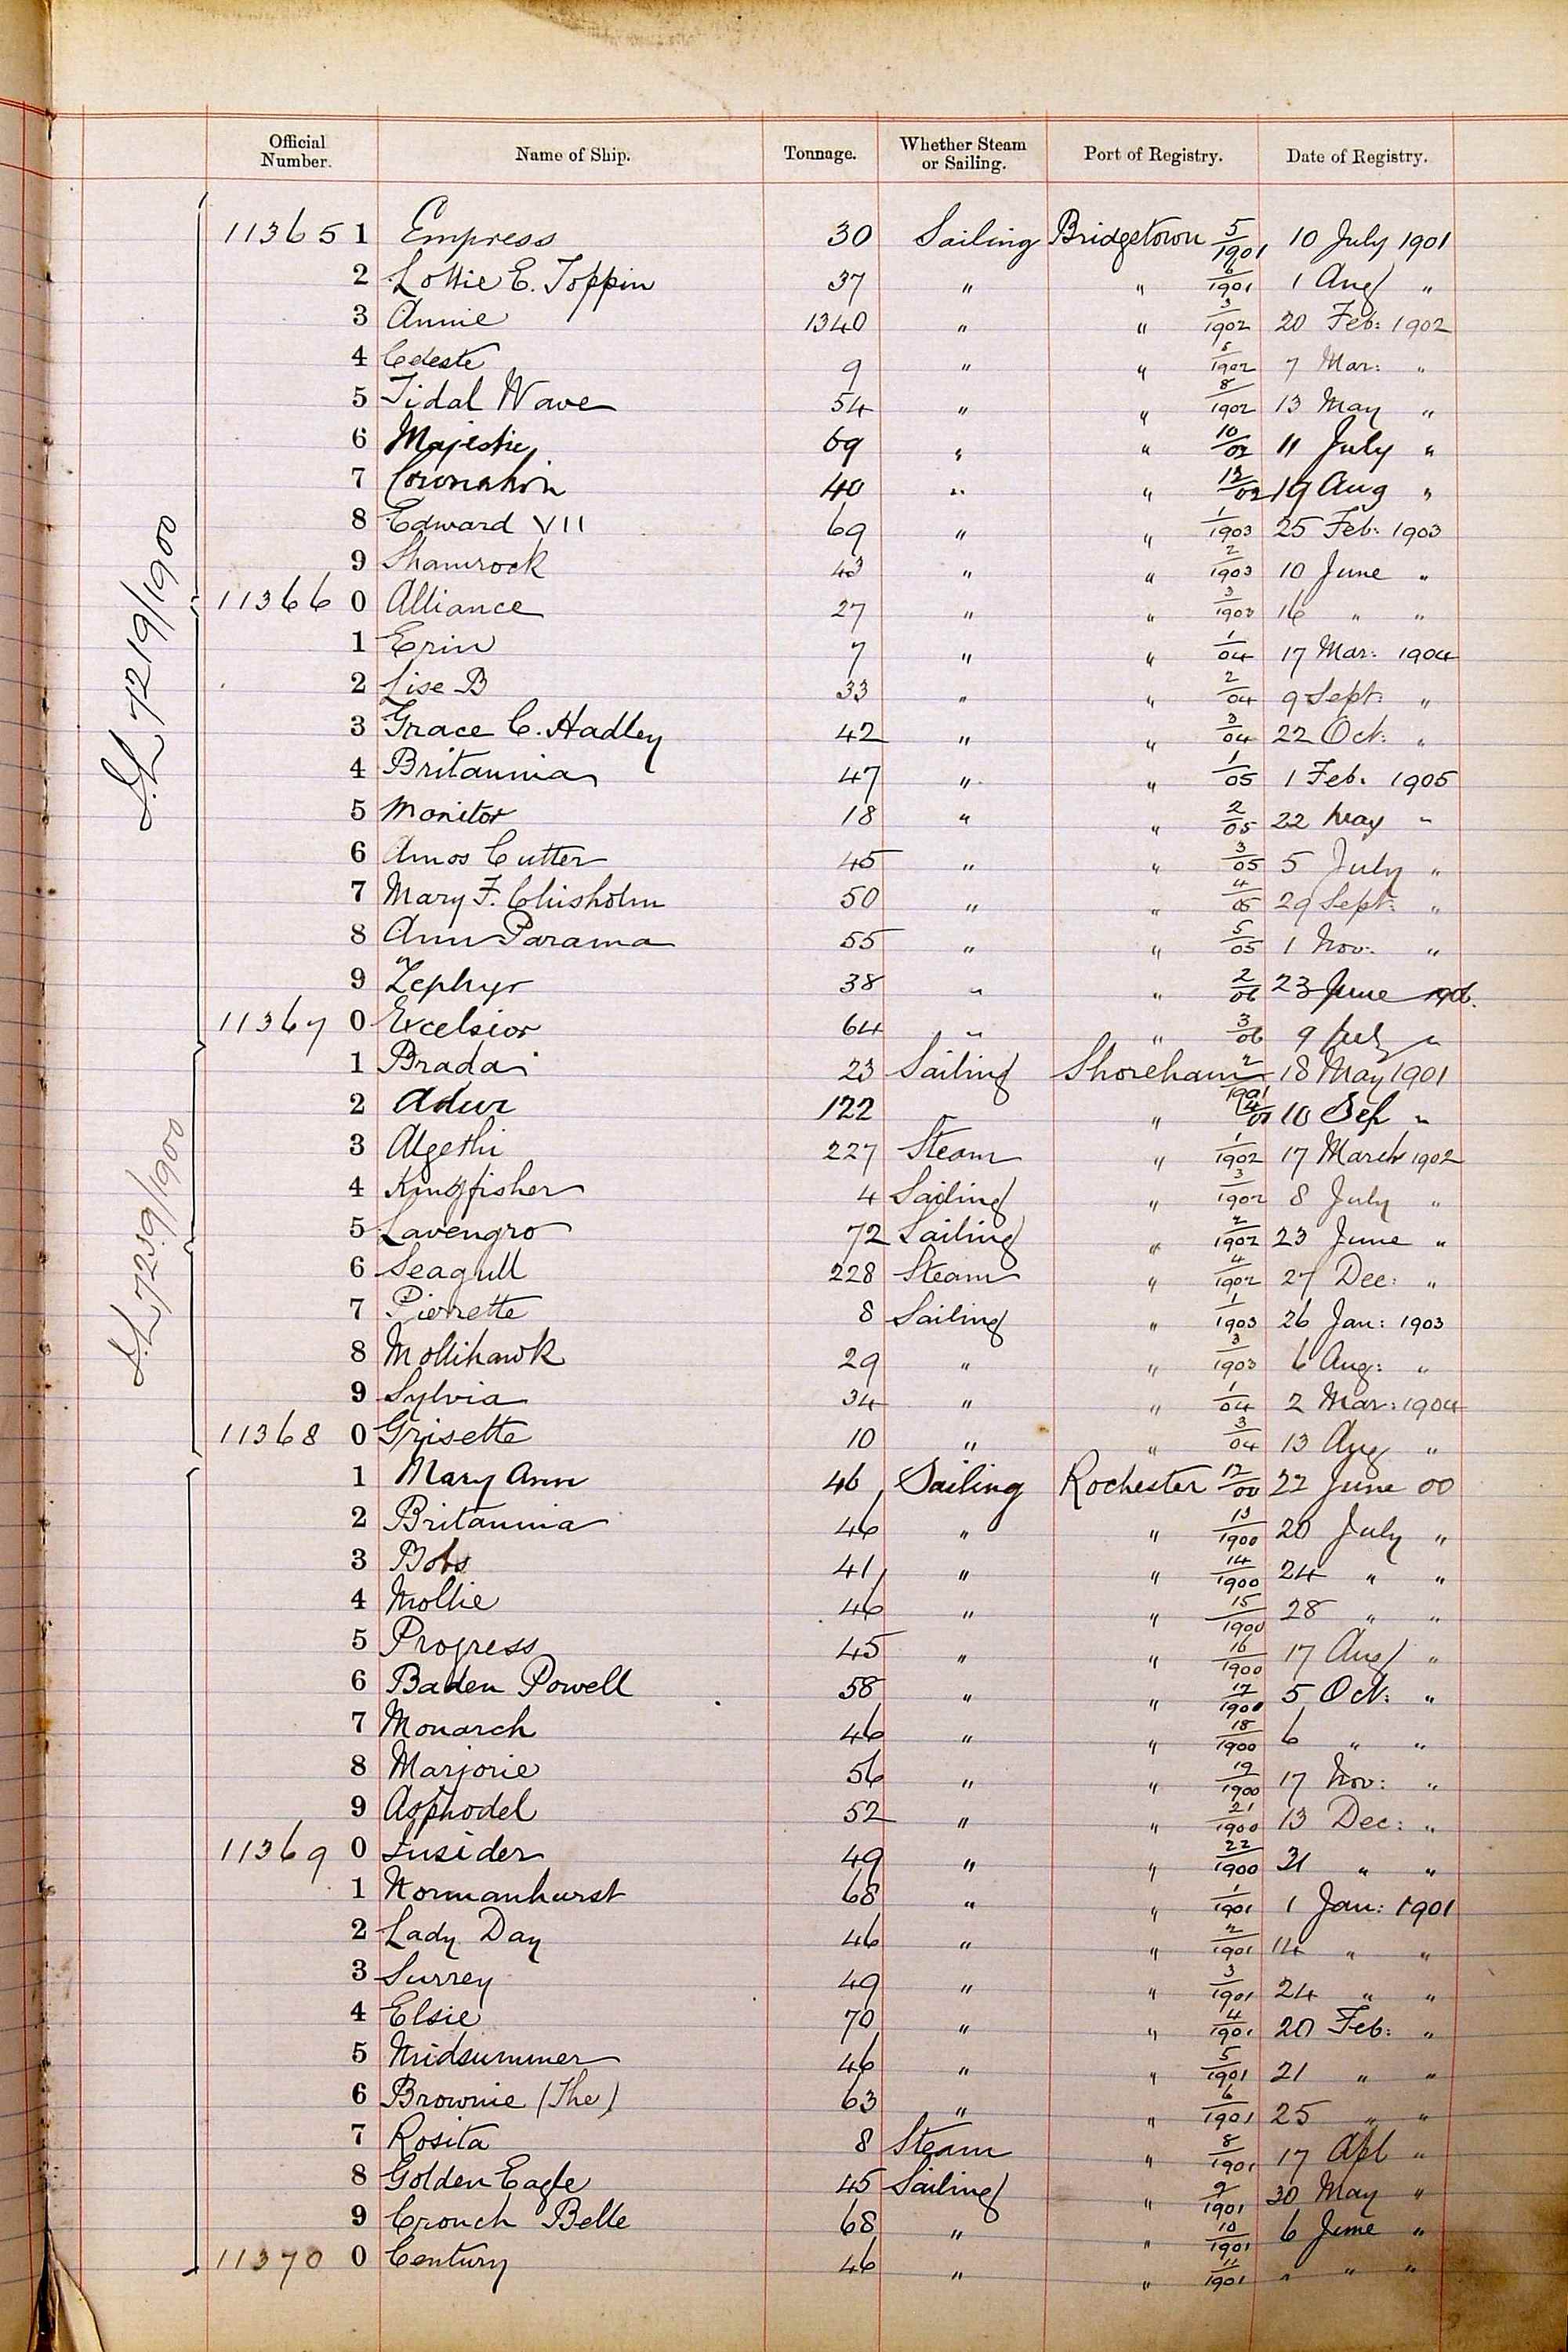 Official Number. Name of Ship. Tonnage. Whether Steam or Sailing. Port of Registry. Date of Registry.
S.L 7219/1900
11365 1 Empress 30 Sailing Bridgetown 5/1901 10 July 1901
2 Lottie E. Toppin 37 " " 6/1901 1 Aug "
3 Annie 1340 " " 3/1902 20 Feb: 1902
4 Celeste 9 " " 5/1902 7 Mar: "
5 Tidal Wave 54 " " 8/1902 13 May "
6 Majestic 69 " " 10/02 11 July "
7 Coronation 40 " " 12/02 19 Aug "
8 Edward VII 69 " " 1/1903 25 Feb: 1903
9 Shamrock 43 " " 2/1903 10 June "
11366 0 Alliance 27 " " 3/1903 16 " "
1 Erin 7 " " 1/04 17 Mar: 1904
2 Lise B 33 " " 2/04 9 Sept: "
3 Grace C. Hadley 42 " " 3/04 22 Oct: "
4 Britannia 47 " " 1/05 1 Feb. 1905
5 Monitor 18 " " 2/05 22 May "
6 Amos Cutter 45 " " 3/05 5 July "
7 Mary F. Chisholm 50 " " 4/05 29 Sept: "
8 Ann Parama 55 " " 5/05 1 Nov: "
9 Zephyr 38 " " 2/06 23 June 1906.
11367 0 Excelsior 64 " " 3/06 9 July "
S.L 7239/1900
1 Brada 23 Sailing Shoreham 2/1901 18 May 1901
2 Adur 122 " 4/01 10 Sep "
3 Algethi 227 Steam " 1/1902 17 March 1902
4 Kingfisher 4 Sailing " 3/1902 8 July "
5 Lavengro 72 Sailing " 2/1902 23 June "
6 Seagull 228 Steam " 4/1902 27 Dec: "
7 Pierrette 8 Sailing " 1/1903 26 Jan: 1903
8 Mollihawk 29 " " 3/1903 6 Aug: "
9 Sylvia 34 " " 1/04 2 Mar: 1904
11368 0 Grisette 10 " " 3/04 13 Aug "
1 Mary Ann 46 Sailing Rochester 12/00 22 June 00
2 Britannia 46 " " 13/1900 20 July "
3 Bobs 41 " " 14/1900 24 " "
4 Mollie 46 " " 15/1900 28 " "
5 Progress 45 " " 16/1900 17 Aug "
6 Baden Powell 58 " " 17/1900 5 Oct: "
7 Monarch 46 " " 18/1900 6 " "
8 Marjorie 56 " " 19/1900 17 Nov: "
9 Asphodel 52 " " 21/1900 13 Dec: "
11369 0 Insider 49 " " 22/1900 31 " "
1 Normanhurst 68 " " 1/1901 1 Jan: 1901
2 Lady Day 46 " " 2/1901 14 " "
3 Surrey 49 " " 3/1901 24 " "
4 Elsie 70 " " 4/1901 20 Feb: "
5 Midsummer 46 " " 5/1901 21 " "
6 Brownie (The) 63 " " 6/1901 25 " "
7 Rosita 8 Steam " 8/1901 17 Apl "
8 Golden Eagle 45 Sailing " 9/1901 30 May "
9 Crouch Belle 68 " " 10/1901 6 June "
11370 0 Century 46 " " 11/1901 " " "